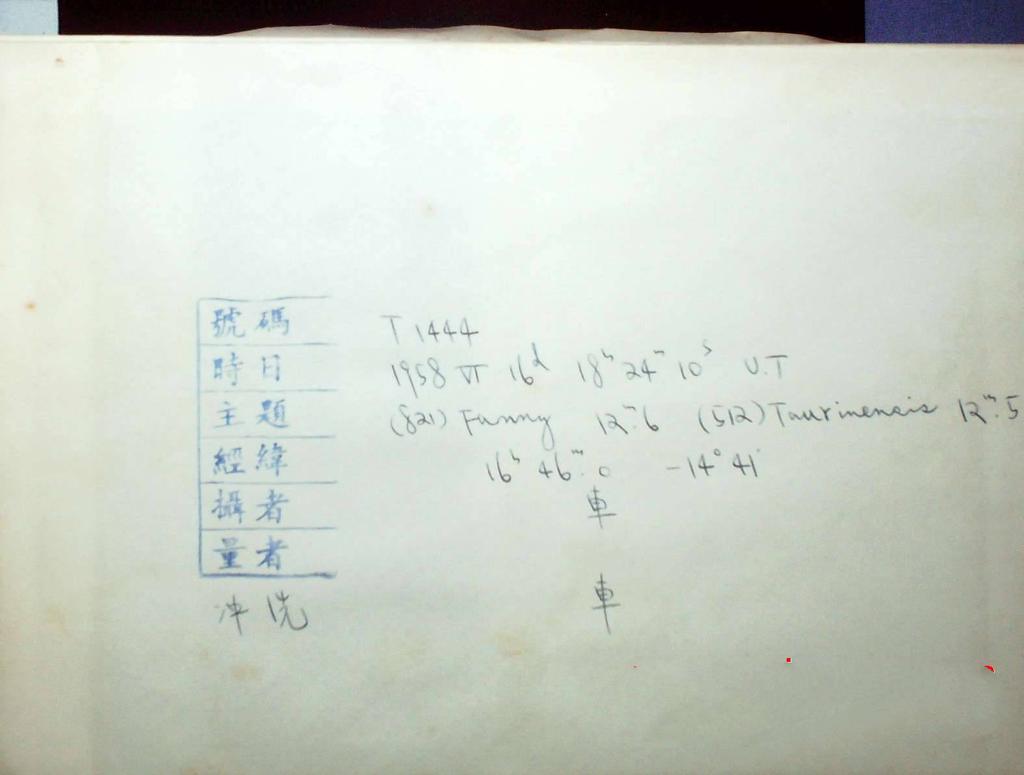 號碼 T 1444
時日 1958 VI 16ᵈ 18ʰ 24ᵐ 10ˢ U.T
主題 (821) Fanny 12ᵐ.6 (512) Taurinensis 12ᵐ.5
經緯 16ʰ 46ᵐ.0 -14° 41'
攝者 車
量者
冲洗 車